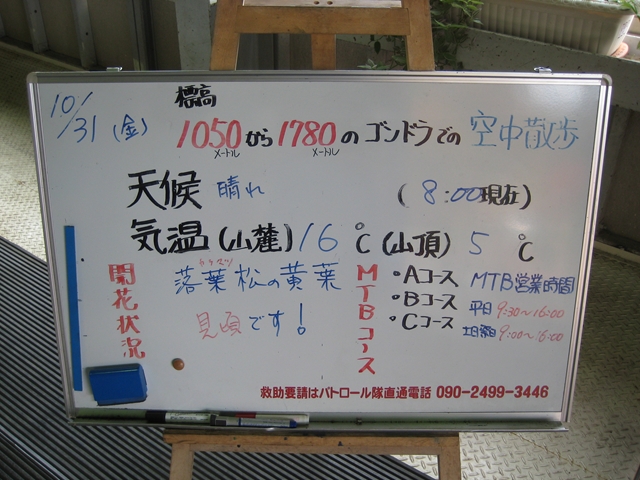 10/31 (金)
標高
1050から1780のゴンドラでの空中散歩
メートル メートル
天候 晴れ (8:00現在)
気温(山麓)16℃(山頂)5℃
開花状況
カラマツ
落葉松の黄葉
見頃です!
MTBコース
°Aコース
°Bコース
°Cコース
MTB営業時間
平日 9:30~16:00
土日祝 9:00~16:00
救助要請はパトロール隊直通電話 090-2499-3446